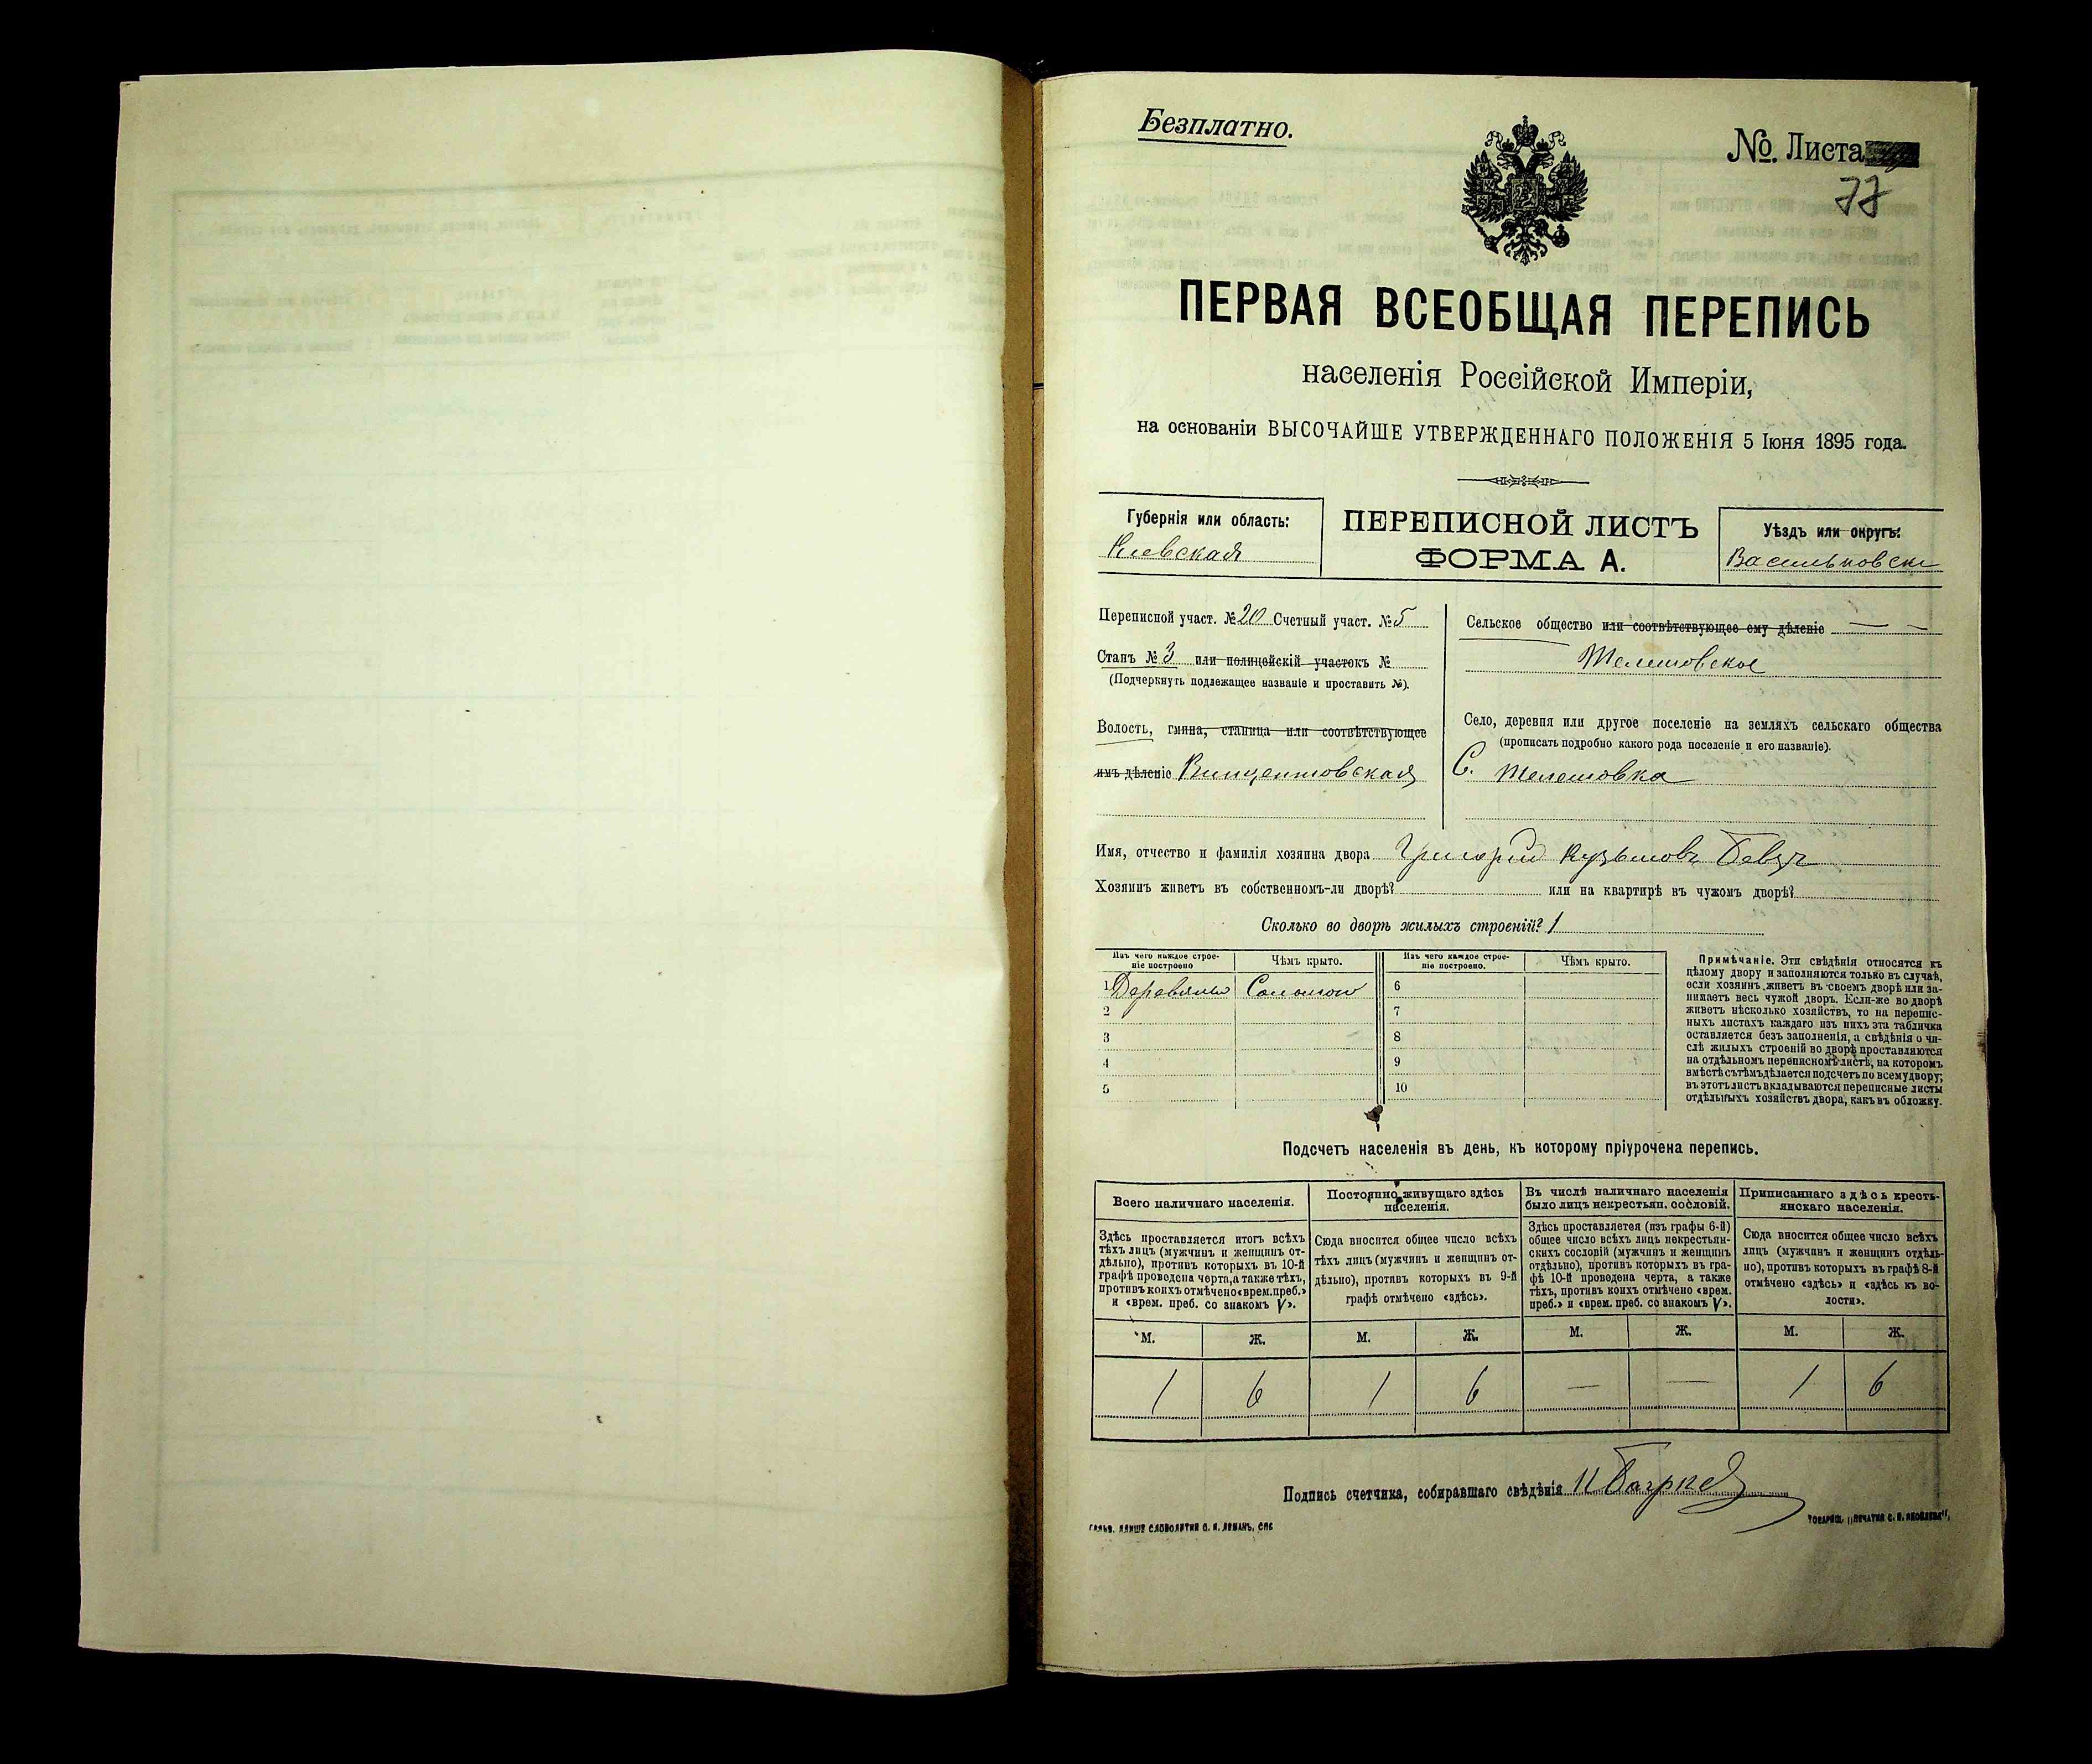 Безплатно.
№. Листа
77
ПЕРВАЯ ВСЕОБЩАЯ ПЕРЕПИСЬ
населенія Россійской Имперіи,
на основаніи ВЫСОЧАЙШЕ УТВЕРЖДЕННАГО ПОЛОЖЕНІЯ 5 Іюня 1895 года.
Губернія или область:
Киевская
ПЕРЕПИСНОЙ ЛИСТЪ
ФОРМА А.
Уѣздъ или округъ:
Васильковски
Переписной участ. № 20 Счетный участ. № 5
Станъ № 3 или полицейскій участокъ №
(Подчеркнуть подлежащее названіе и проставить №).
Волость, гмина, станица или соотвѣтствующее
имъ дѣленіе Винцентовская
Сельское общество или соотвѣтствующее ему дѣленіе
Телешовское
Село, деревня или другое поселеніе на земляхъ сельскаго общества
(прописать подробно какого рода поселеніе и его названіе).
С. Телешовка
Имя, отчество и фамилія хозяина двора Григорий Кузьмовъ Бевзъ
Хозяинъ живетъ въ собственномъ-ли дворѣ? или на квартирѣ въ чужомъ дворѣ?
Сколько во дворѣ жилыхъ строеній? 1
Изъ чего каждое строе-
ніе построено
Чѣмъ крыто.
Изъ чего каждое строе-
ніе построено.
Чѣмъ крыто.
1 6
2 7
3 8
4 9
5 10
Примѣчаніе. Эти свѣдѣнія относятся къ
цѣлому двору и заполняются только въ случаѣ,
если хозяинъ живетъ въ своемъ дворѣ или за-
нимаетъ весь чужой дворъ. Если-же во дворѣ
живетъ нѣсколько хозяйствъ, то на перепис-
ныхъ листахъ каждаго изъ нихъ эта табличка
оставляется безъ заполненія, а свѣдѣнія о чи-
слѣ жилыхъ строеній во дворѣ проставляются
на отдѣльномъ переписномъ листѣ, на которомъ
вмѣстѣ съ тѣмъ дѣлается подсчетъ по всему двору;
въ этотъ листъ вкладываются переписные листы
отдѣльныхъ хозяйствъ двора, какъ въ обложку.
Подсчетъ населенія въ день, къ которому пріурочена перепись.
Всего наличнаго населенія.
Постоянно живущаго здѣсь
населенія.
Въ числѣ наличнаго населенія
было лицъ некрестьян. сословій.
Приписаннаго здѣсь кресть-
янскаго населенія.
Здѣсь проставляется итогъ всѣхъ
тѣхъ лицъ (мужчинъ и женщинъ от-
дѣльно), противъ которыхъ въ 10-й
графѣ проведена черта, а также тѣхъ,
противъ коихъ отмѣчено «врем. преб.»
и «врем. преб. со знакомъ V».
Сюда вносится общее число всѣхъ
тѣхъ лицъ (мужчинъ и женщинъ от-
дѣльно), противъ которыхъ въ 9-й
графѣ отмѣчено «здѣсь».
Здѣсь проставляется (изъ графы 6-й)
общее число всѣхъ лицъ некрестьян-
скихъ сословій (мужчинъ и женщинъ
отдѣльно), противъ которыхъ въ гра-
фѣ 10-й проведена черта, а также
тѣхъ, противъ коихъ отмѣчено «врем.
преб.» и «врем. преб. со знакомъ V».
Сюда вносится общее число всѣхъ
лицъ (мужчинъ и женщинъ отдѣль-
но), противъ которыхъ въ графѣ 8-й
отмѣчено «здѣсь» и «здѣсь къ во-
лости».
М. Ж. М. Ж. М. Ж. М. Ж.
1 6 1 6 — — 1 6
Подпись счетчика, собиравшаго свѣдѣнія